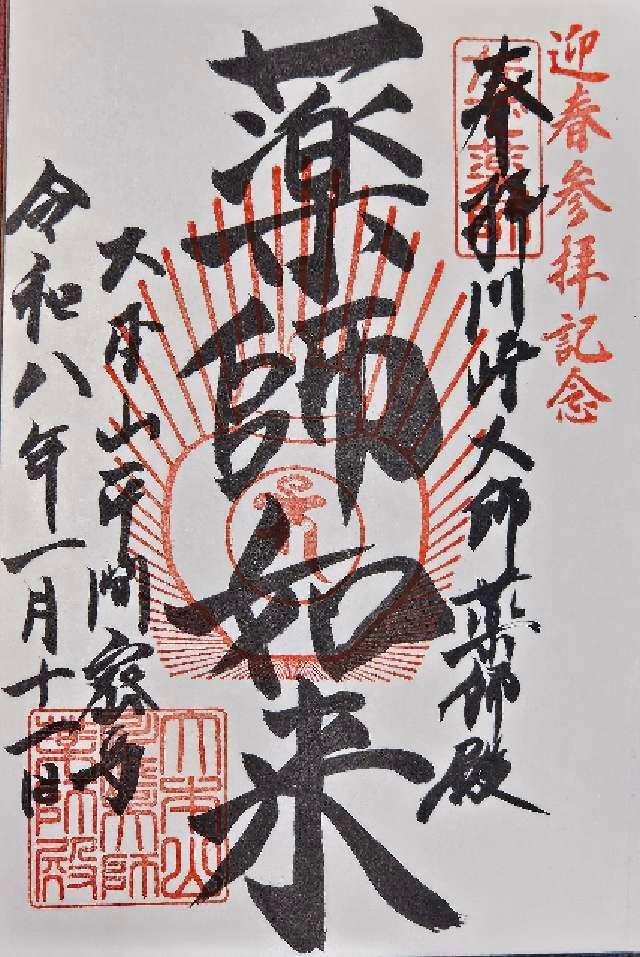 迎春参拝記念
奉拝 川崎大師薬師殿
薬師如来
大本山平間寺
令和八年一月十一日
大本山
川崎大師
薬師殿